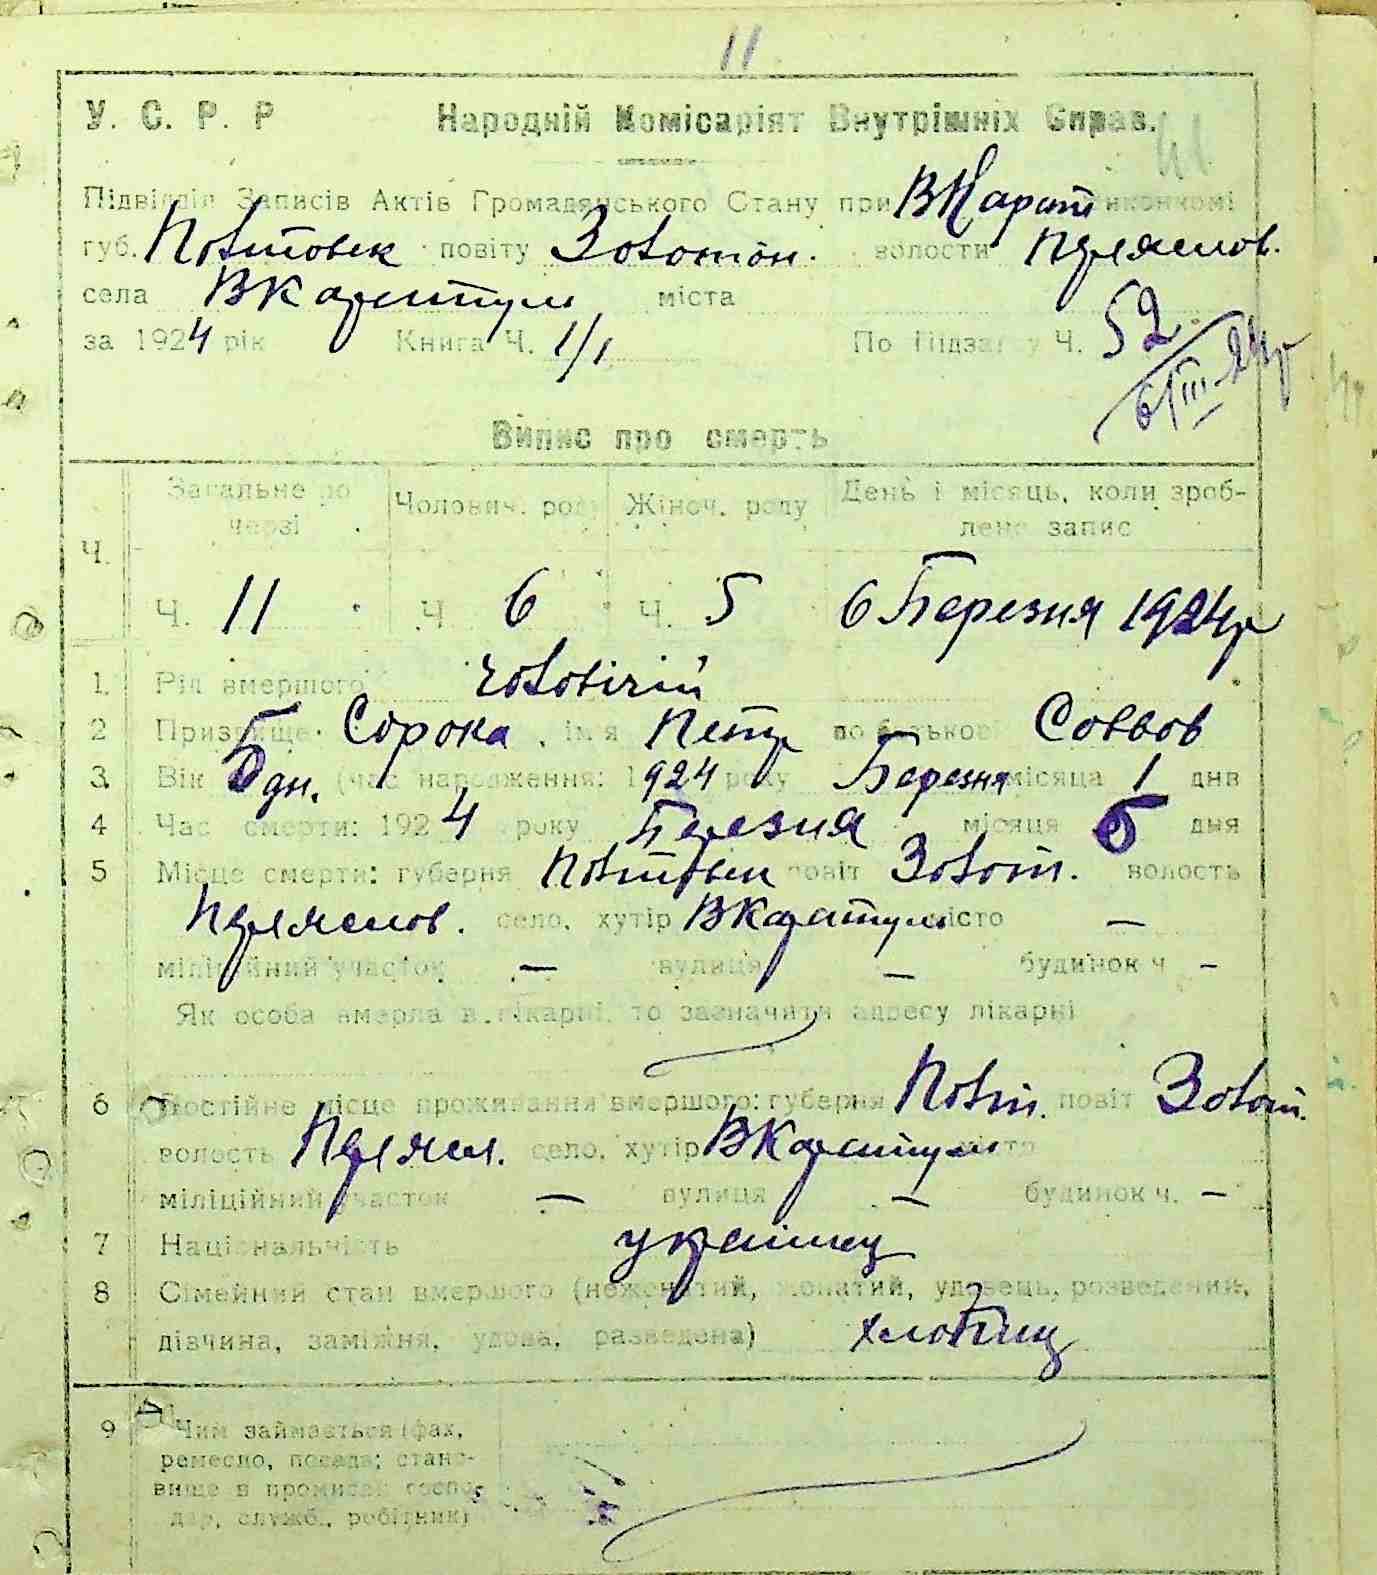 11
У. С. Р. Р Народній Комісаріят Внутрішніх Справ.
Підвідділ Записів Актів Громадянського Стану при ВКарат виконкомі
губ. Полтовськ повіту Золотон. волости Переяслов.
села ВКаратули міста
за 1924 рік Книга Ч. 1/1 По Підзагу Ч. 52
6/III-24р
Випис про смерть
Ч. Загальне по черзі Чоловіч. роду Жіноч. роду День і місяць, коли зроб-
лено запис
Ч. 11 Ч. 6 Ч. 5 6 Березня 1924р
1. Рід вмершого чоловічий
2 Призвище Сорока, ім'я Петр по батькові Соввов
3. Вік 5 дн. (час народження: 1924 року Березня місяца 1 дня
4 Час смерти: 1924 року Березня місяця 6 дня
5 Місце смерти: губерня Полтовськ повіт Золот. волость
Переяслов. село, хутір ВКаратули місто —
міліційний участок — вулиця — будинок ч —
Як особа вмерла в лікарні, то зазначити адресу лікарні
6 Постійне місце проживання вмершого: губерня Полт. повіт Золот.
волость Переясл. село, хутір ВКаратули місто
міліційний участок — вулиця — будинок ч. —
7 Національність украінец
8 Сімейний стан вмершого (неженатий, жонатий, удовець, розведений,
дівчина, заміжня, удова, разведена) хлопец
9 Чим займається (фах,
ремесло, посада; стано-
вище в промислі: госпо-
дар, служб., робітник)